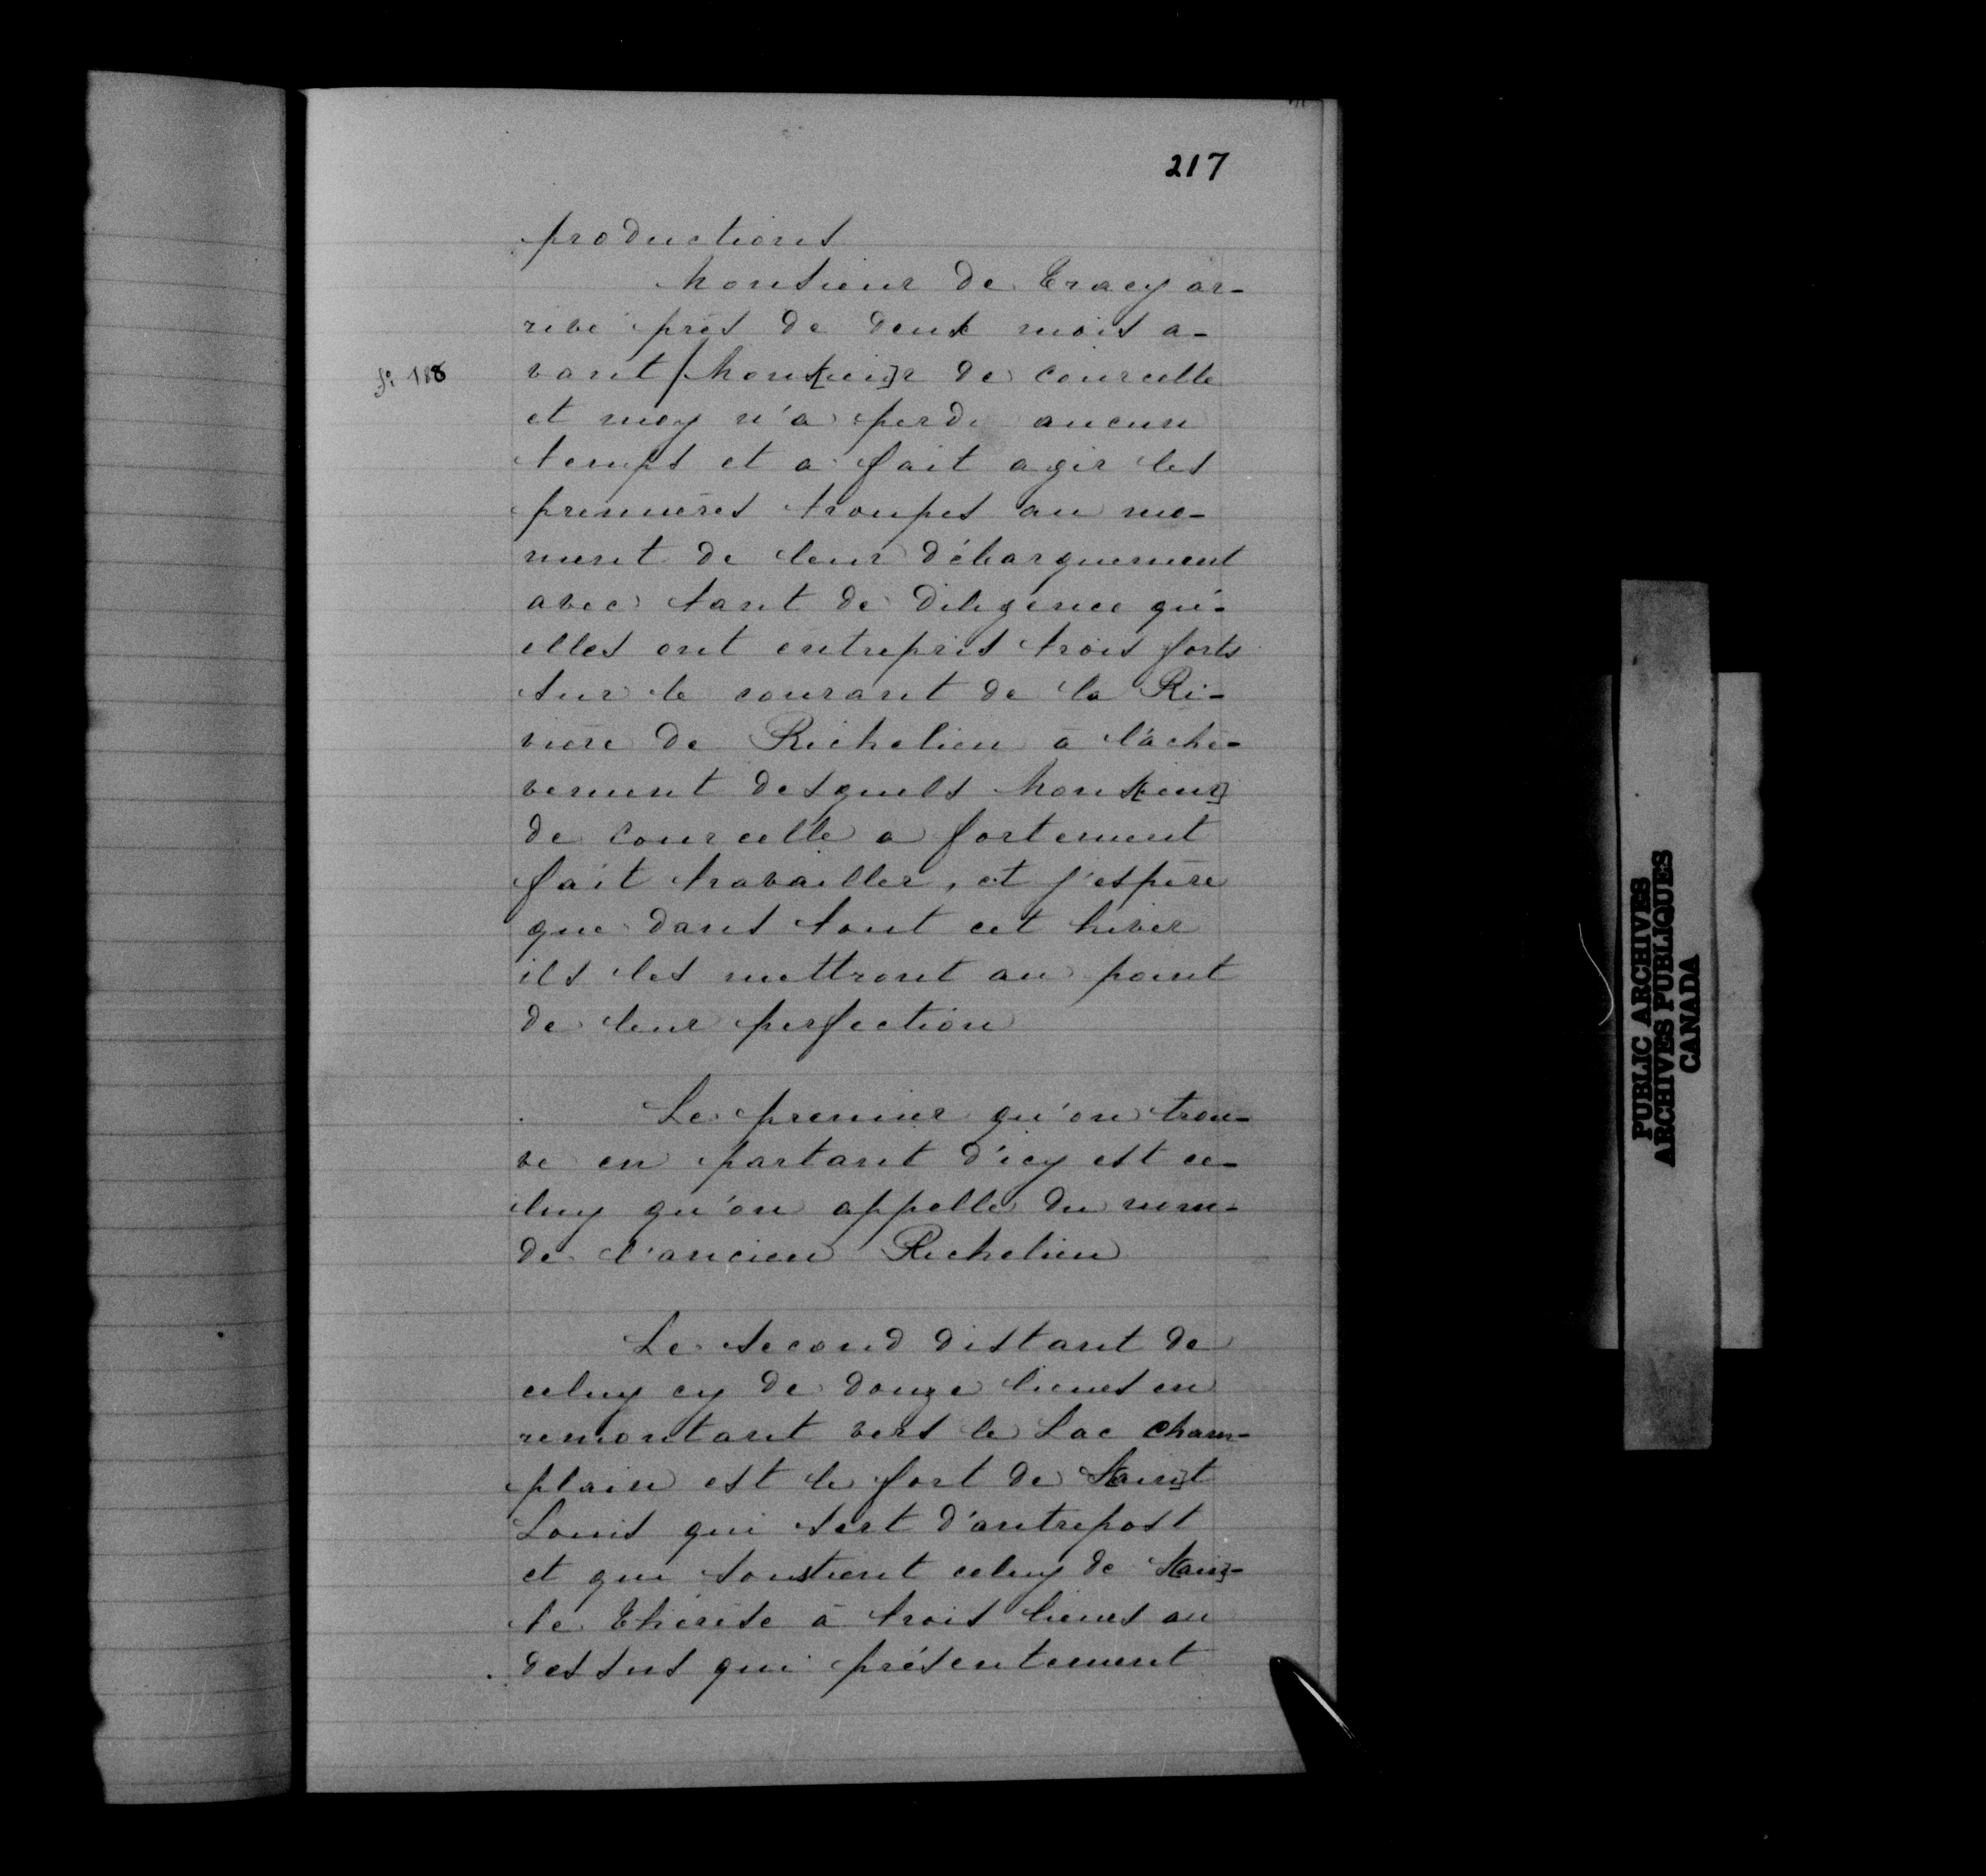 217
productions
Monsieur de Tracy ar-
rivé près de deux mois a-
fo 188
vant / Mons[ieu]r de Courcelle
et moy n'a perdu aucun
temps et a fait agir les
premières troupes au mo-
ment de leur débarquement
avec tant de diligence qu'-
elles ont entrepris trois forts
sur le courant de la Ri-
vière de Richelieu à l'aché-
vement desquels Mons[ieur]
de Courcelle a fortement
fait travailler, et j'espère
que dans tout cet hiver
ils les mettront au point
de leur perfection
Le premier qu'on trou-
ve en partant d'icy est ce-
luy qu'on appelle du nom
de l'ancien Richelieu
Le second distant de
celuy cy de douze lieues en
remontant vers le Lac Cham-
plain est le fort de S[ain]t
Louis qui sert d'antrepost
et qui soustient celuy de S[ain]-
te Thérèse à trois lieues au
dessus qui présentement
PUBLIC ARCHIVES
ARCHIVES PUBLIQUES
CANADA